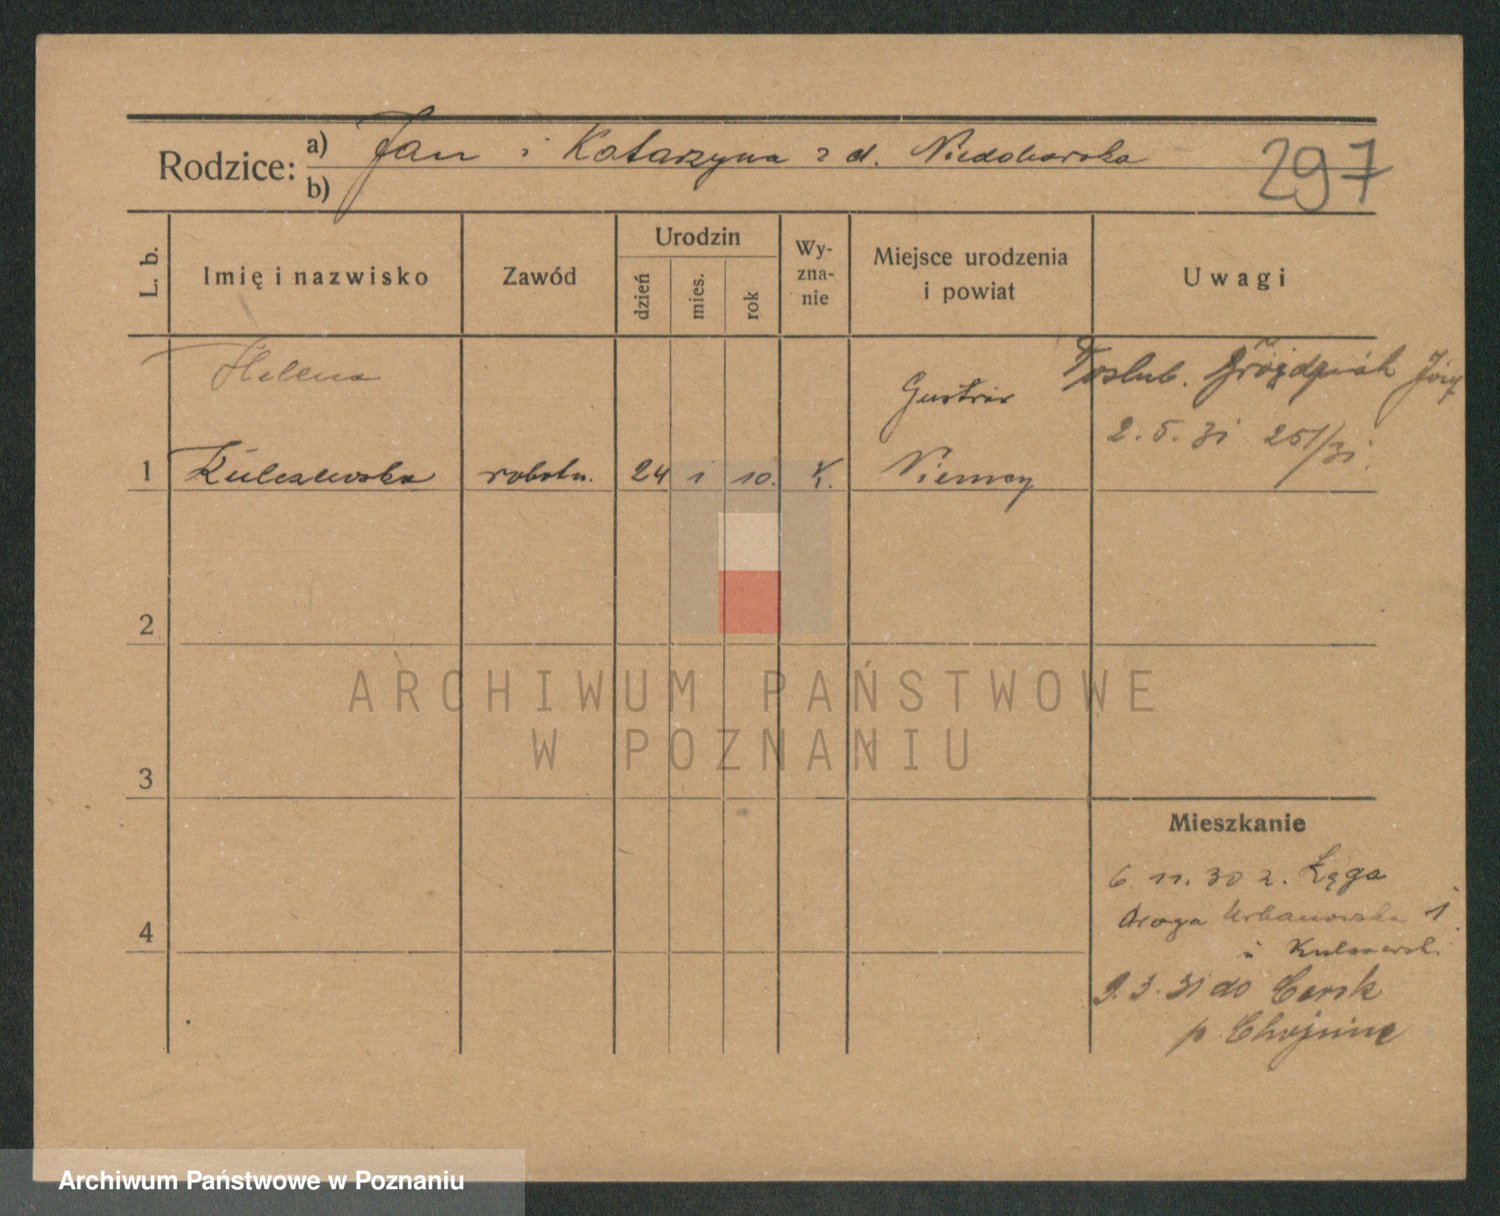 Rodzice: a) Jan i Katarzyna z d.
b)
297
L. b.
Imię i nazwisko
Zawód
Urodzin
dzień
mies.
rok
Wy-
zna-
nie
Miejsce urodzenia
i powiat
Uwagi
Helena
Kulczewska
1
robotn.
24
1
10.
K.
Niemcy
Poslub.
2. 5. 31 251/31.
2
3
4
Mieszkanie
6. 11. 30 z. Łęga
Droga Urbanowska 1
9. 3. 31 do Czersk
p. Chojnice
ARCHIWUM PAŃSTWOWE
W POZNANIU
Archiwum Państwowe w Poznaniu